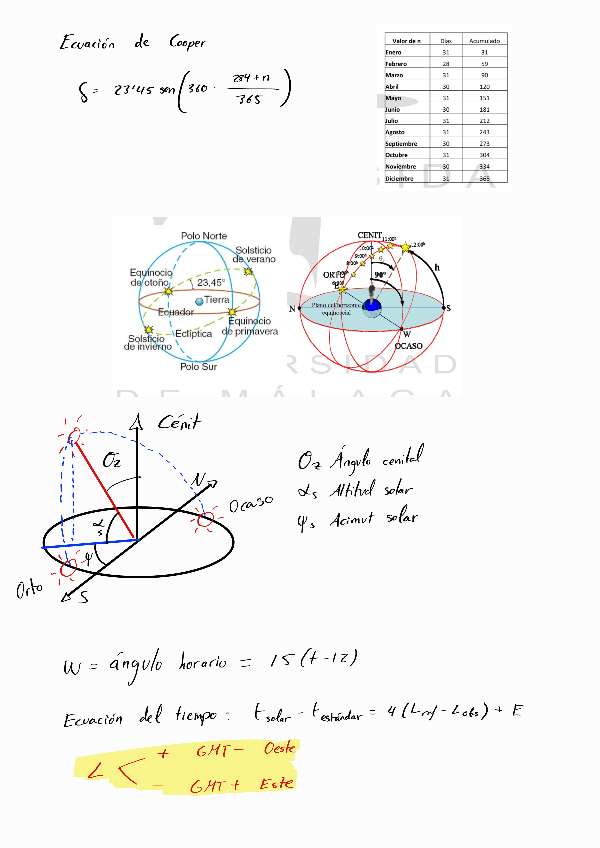 Ecuación de Cooper
δ = 23'45 sen(360 · (284+n)/365)
Valor de n Días Acumulado
Enero 31 31
Febrero 28 59
Marzo 31 90
Abril 30 120
Mayo 31 151
Junio 30 181
Julio 31 212
Agosto 31 243
Septiembre 30 273
Octubre 31 304
Noviembre 30 334
Diciembre 31 365
Polo Norte
Solsticio de verano
Equinocio de otoño
23,45°
Tierra
Ecuador
Equinocio de primavera
Eclíptica
Solsticio de invierno
Polo Sur
CENIT
11:00h
12:00h
10:00h
9:00h
8:00h
ORTO
90°
h
Plano del horizonte equinoccial
N
S
W
OCASO
RSIDAD
DE MÁLAGA
Cénit
θz
N
Ocaso
αs
ψ
Orto
S
θz Ángulo cenital
αs Altitud solar
ψs Acimut solar
W = ángulo horario = 15(t-12)
Ecuación del tiempo: t solar - t estándar = 4(L ref - L obs) + E
L < + GMT- Oeste
- GMT+ Este